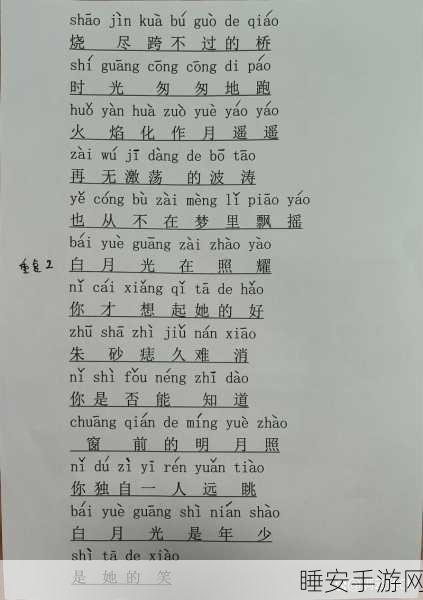 shāo jìn kuà bú guò de qiáo
烧 尽 跨 不 过 的 桥
shí guāng cōng cōng di pǎo
时 光 匆 匆 地 跑
huǒ yàn huà zuò yuè yáo yáo
火 焰 化 作 月 遥 遥
zài wú jī dàng de bō tāo
再 无 激 荡 的 波 涛
yě cóng bù zài mèng lǐ piāo yáo
也 从 不 在 梦 里 飘 摇
bái yuè guāng zài zhào yào
白 月 光 在 照 耀
重复2
nǐ cái xiǎng qǐ tā de hǎo
你 才 想 起 她 的 好
zhū shā zhì jiǔ nán xiāo
朱 砂 痣 久 难 消
nǐ shì fǒu néng zhī dào
你 是 否 能 知 道
chuāng qián de míng yuè zhào
窗 前 的 明 月 照
nǐ dú zì yī rén yuǎn tiào
你 独 自 一 人 远 眺
bái yuè guāng shì nián shào
白 月 光 是 年 少
shì tā de xiào
是 她 的 笑
睡安手游网